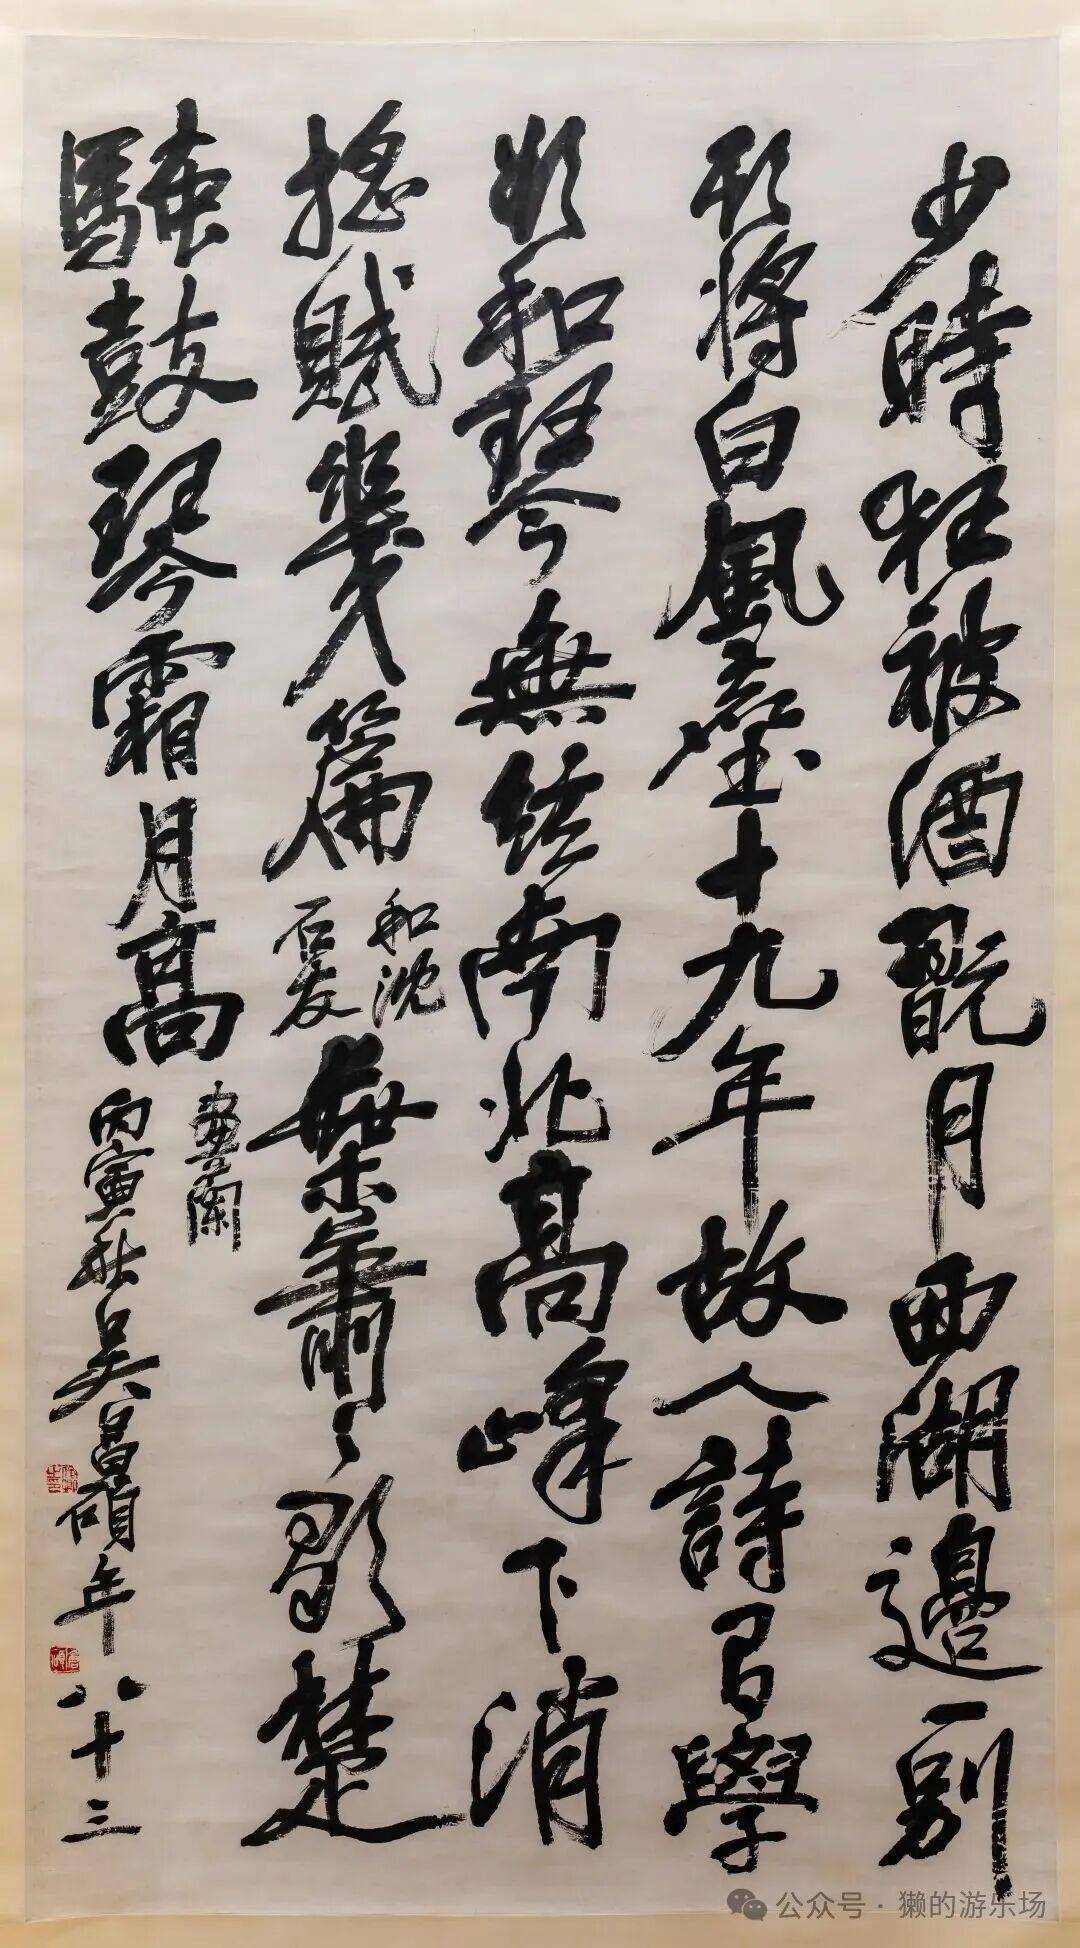 少時狂被酒翫月西湖邊一別
頭將白風塵十九年故人詩學
和琴無絃南北高峰下消
搖賦幾篇
和沈
石友
葉蕭〻歌楚
騷鼓琴霜月高
畫蘭
丙寅秋吳昌碩年八十三
公众号·獭的游乐场